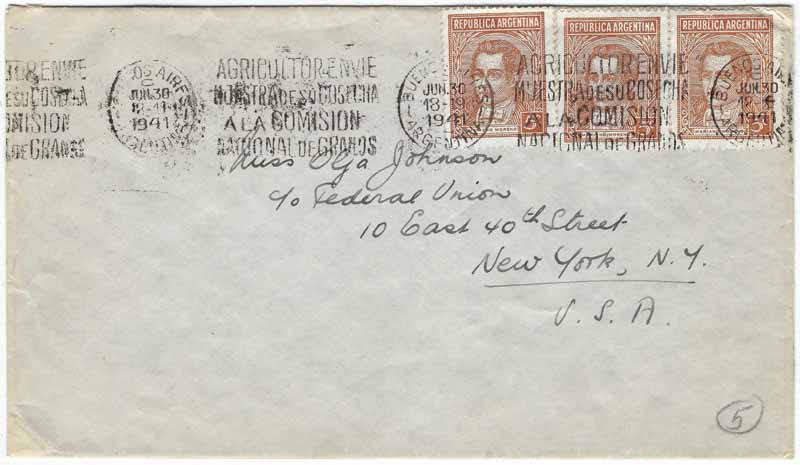 REPUBLICA ARGENTINA REPUBLICA ARGENTINA REPUBLICA ARGENTINA
AGRICULTOR ENVIE
MUESTRA DE SU COSECHA
A LA COMISION
NACIONAL DE GRANOS
BUENOS AIRES
JUN.30
1941
ARGENTINA
BUENOS AIRES
JUN.30
18-19
1941
ARGENTINA
AGRICULTOR ENVIE
MUESTRA DE SU COSECHA
A LA COMISION
NACIONAL DE GRANOS
BUENOS AIRES
JUN.30
1941
ARGENTINA
5 5 5
Miss Olga Johnson
c/o Federal Union
10 East 40th Street
New York, N.Y.
U.S.A.
5